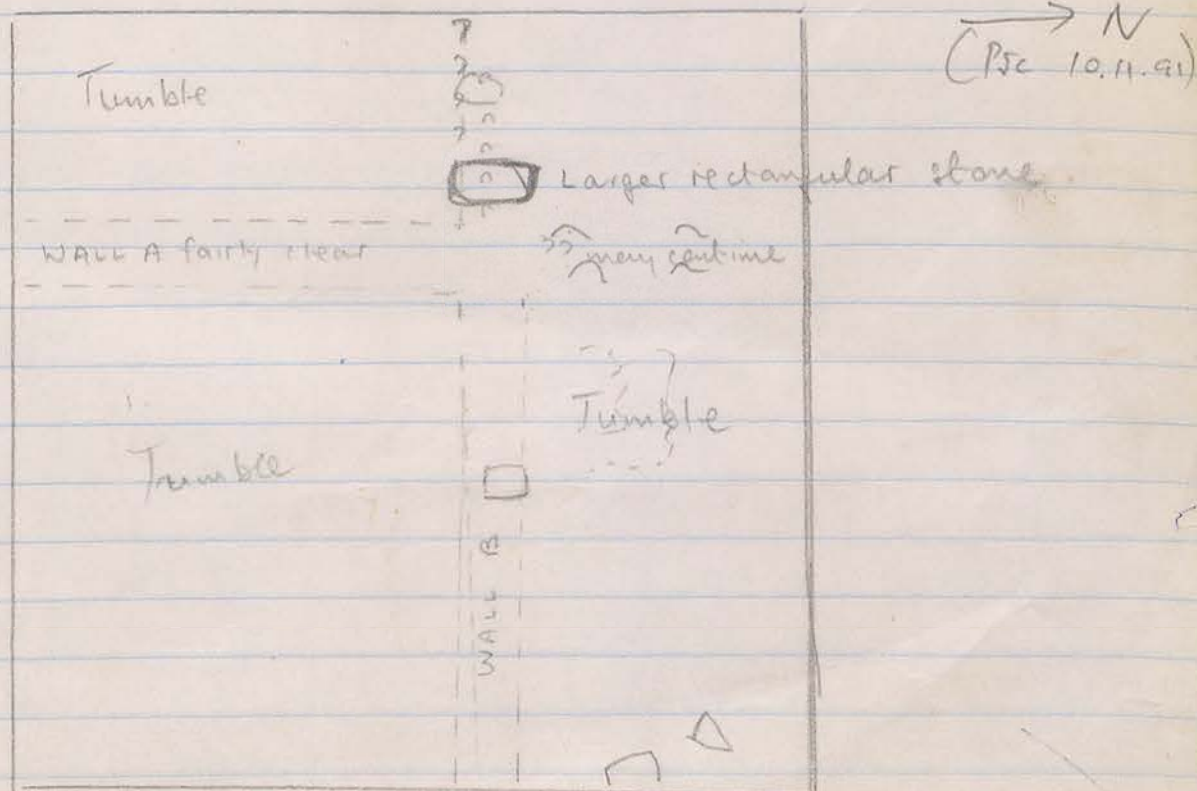 N
(PJC 10.11.91)
Tumble
Larger rectangular stone
WALL A fairly clear
?? may continue
Tumble
Tumble
WALL B